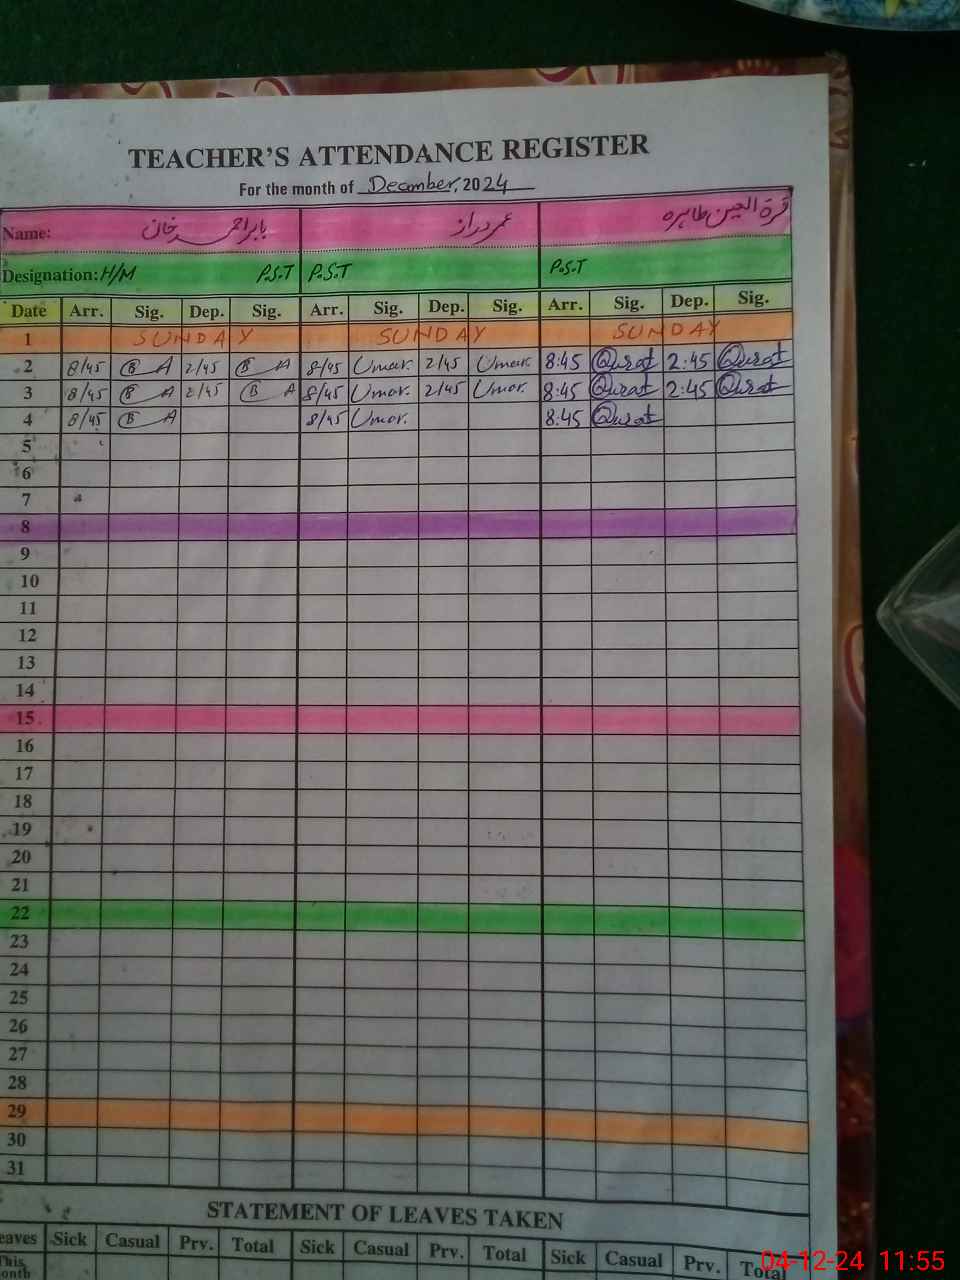 TEACHER'S ATTENDANCE REGISTER
For the month of December, 2024
Name: بابر احمد خان عمر دراز قرۃ العین طاہرہ
Designation: H/M P.S.T P.S.T P.S.T
Date Arr. Sig. Dep. Sig. Arr. Sig. Dep. Sig. Arr. Sig. Dep. Sig.
1 SUNDAY SUNDAY SUNDAY
2 8/45 B A 2/45 B A 8/45 Umar. 2/45 Umar. 8:45 Qurat 2:45 Qurat
3 8/45 B A 2/45 B A 8/45 Umar. 2/45 Umar. 8:45 Qurat 2:45 Qurat
4 8/45 B A 8/45 Umar. 8:45 Qurat
5
6
7
8
9
10
11
12
13
14
15
16
17
18
19
20
21
22
23
24
25
26
27
28
29
30
31
STATEMENT OF LEAVES TAKEN
eaves Sick Casual Prv. Total Sick Casual Prv. Total Sick Casual Prv. Total
This
onth
04-12-24 11:55